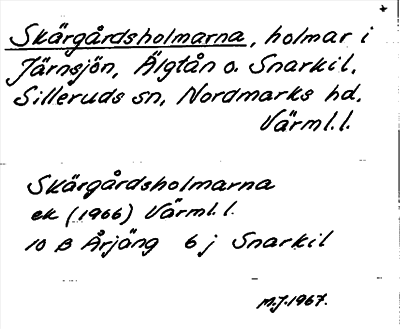 Skärgårdsholmarna, holmar i
Järnsjön, Älgtån o. Snarkil,
Silleruds sn, Nordmarks hd.
Värml.l.
Skärgårdsholmarna
ek (1966) Värml.l.
10 B Årjäng 6 j Snarkil
M.J.1967.